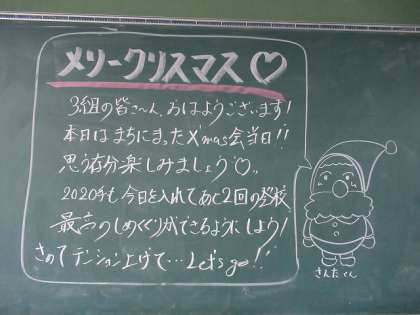 メリークリスマス♡
3組の皆さ〜ん、おはようございます!
本日はまちにまったX'mas会当日!!
思う存分楽しみましょう♡。
2020年も今日を入れてあと2回の登校
最高のしめくくりができるようにしよう!
さめてテンション上げて…Let's go!!
さんたくん